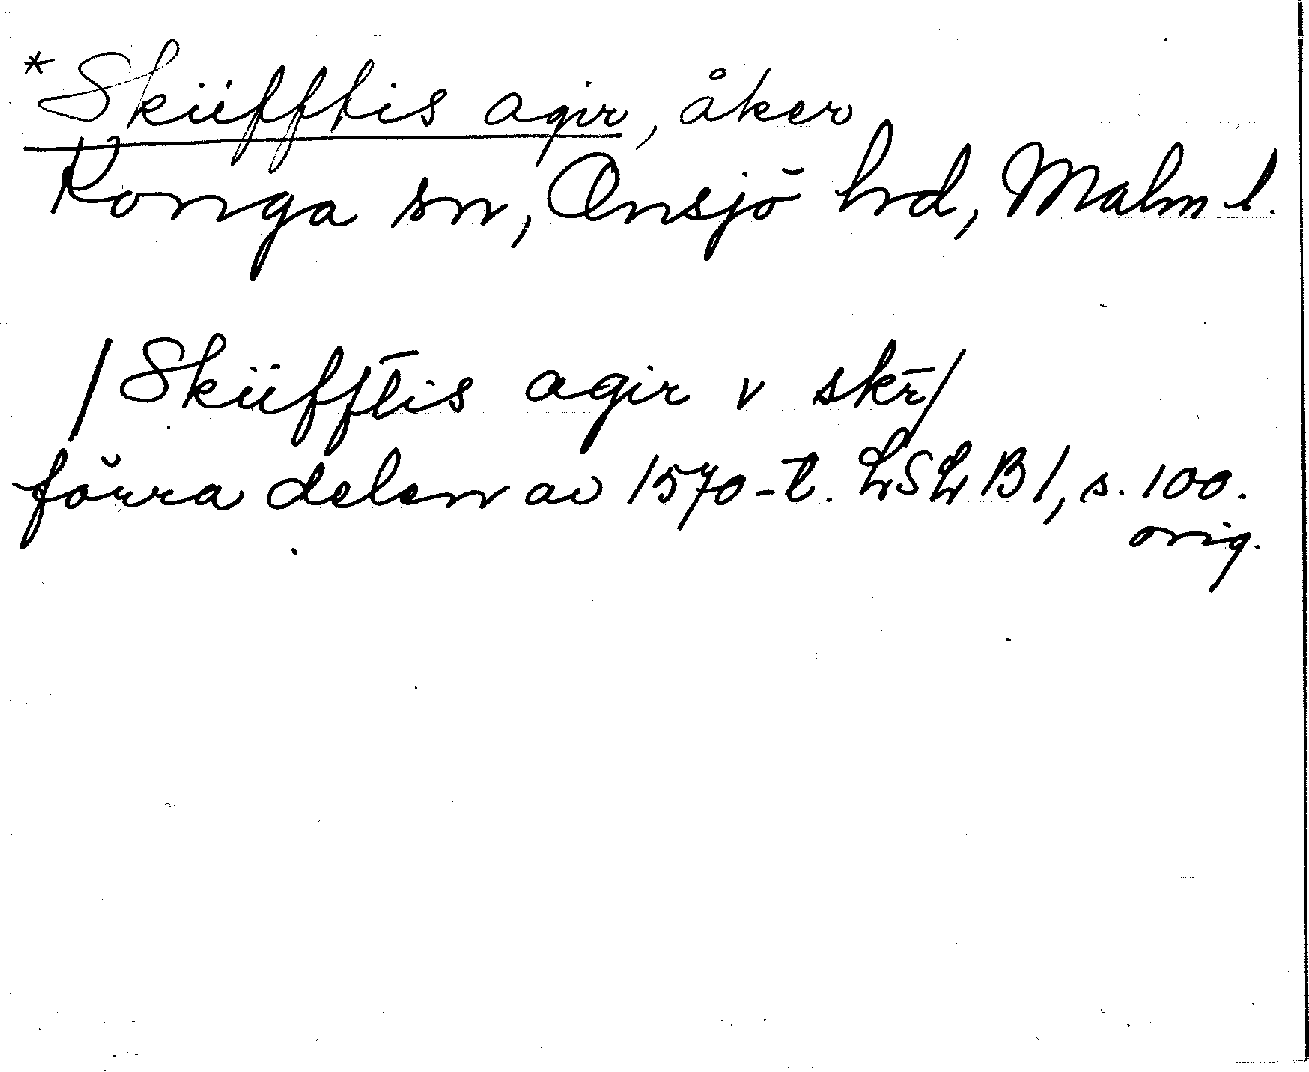 *Sküfftis agir, åker
Konga sn, Onsjö hrd, Malm. l.
/Sküfftis agir v skr/
förra delen av 1570-t. LSLB1, s. 100.
orig.